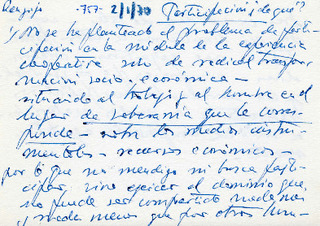 -757- 2/1/70 Participación ¿de qué?
1/ No se ha planteado el problema de parti-
cipación en la médula de la experiencia
cooperativa sino de radical transfor-
mación socio-económica -
situando al trabajo y al hombre en el
lugar de soberanía que le corres-
ponde - sobre los medios instru-
mentales - recursos económicos -
por lo que no mendiga ni busca parti-
cipar, sino ejercer el dominio que
no puede ser compartido nada más
y nada menos que por otros hom-